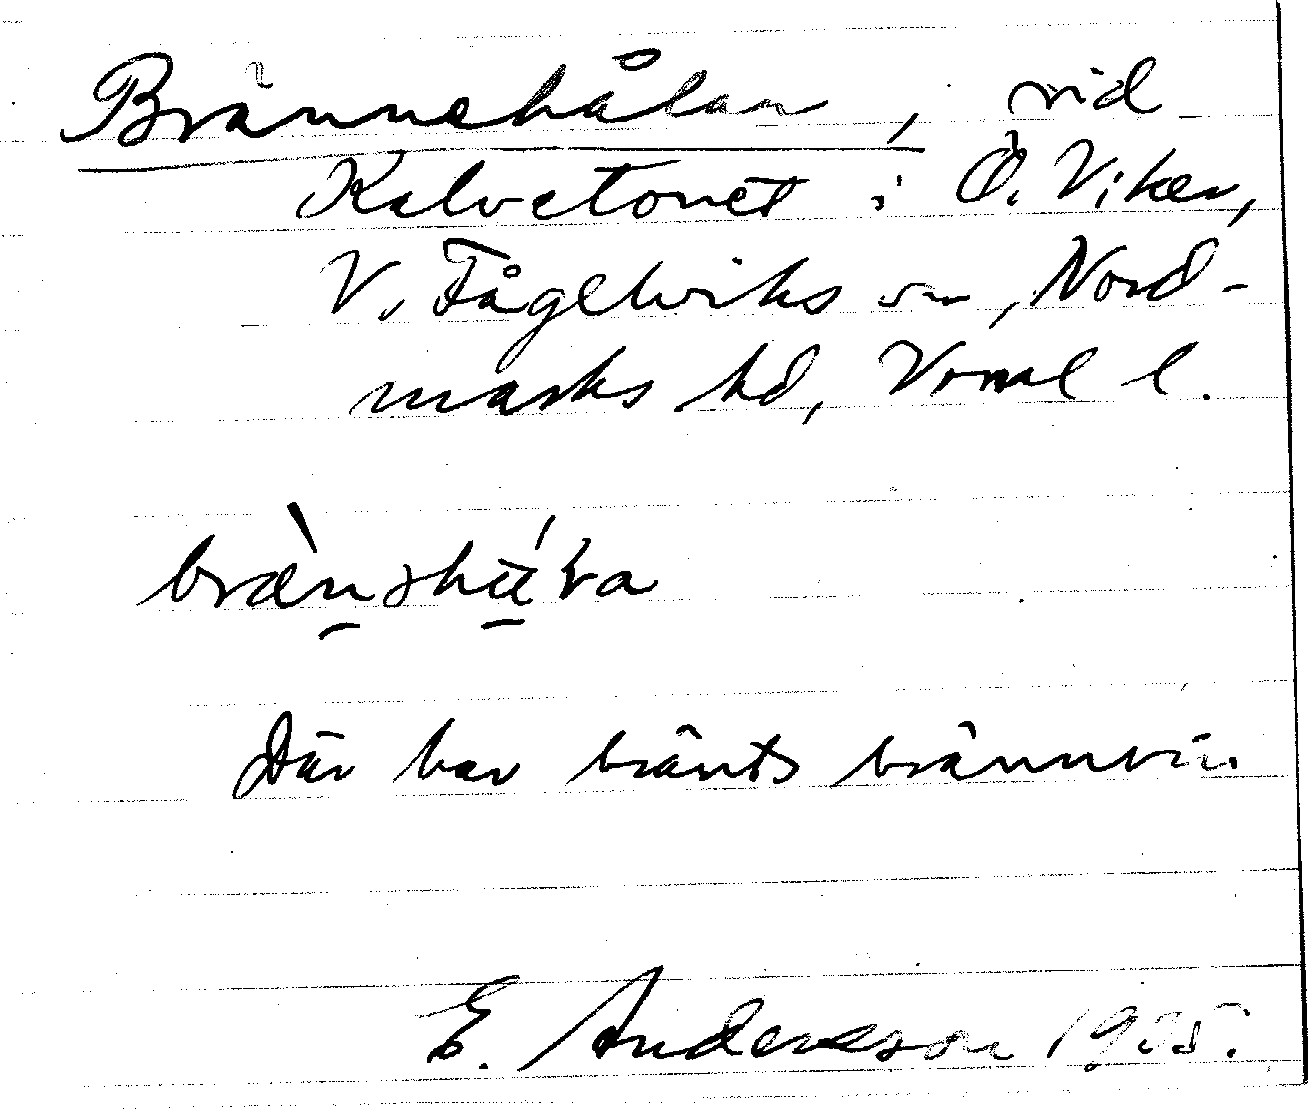 Brännehålan, vid
Kalvetorret i Ö. Viker,
V. Fågelviks sn, Nord-
marks hd, Värml l.
Där har bränts brännvin.
E. Andersson 1935.